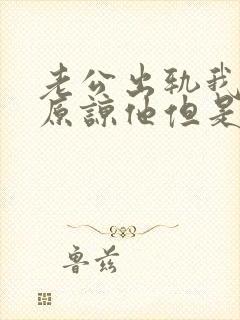 老公出轨我
原谅他但是
鲁兹